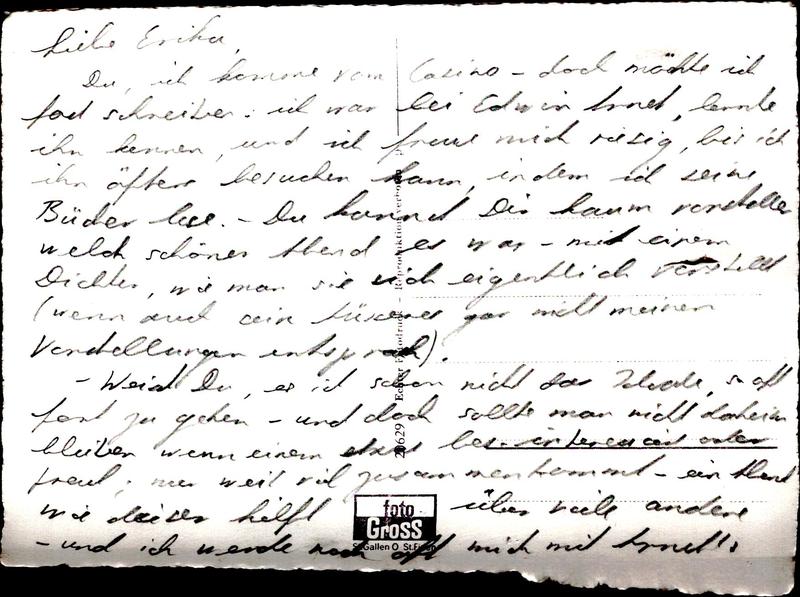 Liebe Erika,
Du, ich komme vom Casino - doch möchte ich
fort schreiben: ich war bei Edwin Arnet, lernte
ihn kennen, und ich freue mich riesig, bis ich
ihn öfters besuchen kann, indem ich seine
Bücher lese. - Du kannst Dir kaum vorstellen
welch schöner Abend es war - mit einem
Dichter, wie man sie sich eigentlich vorstellt
(wenn auch sein Äusseres gar nicht meinen
Vorstellungen entsprach).
- Weisst Du, es ist schon nicht das Ideale, so oft
fort zu gehen - und doch sollte man nicht daheim
bleiben wenn einem etwas bes. interessiert oder
freut; nur weil viel zusammenkommt - ein Abend
wie dieser hilft über viele andere
- und ich werde noch oft mich mit Arnet's
20629 - Echter Fotodruck - Reproduktion verboten
foto
GROSS
St. Gallen O